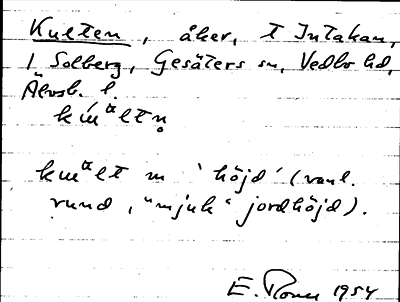 Kulten, åker, t Intakan,
1 Solberg, Gesäters sn, Vedbo hd,
Älvsb. l.
ku̇ᵅltn̥
kuᵅlt m 'höjd' (vanl.
rund, "mjuk" jordhöjd).
E. 1954